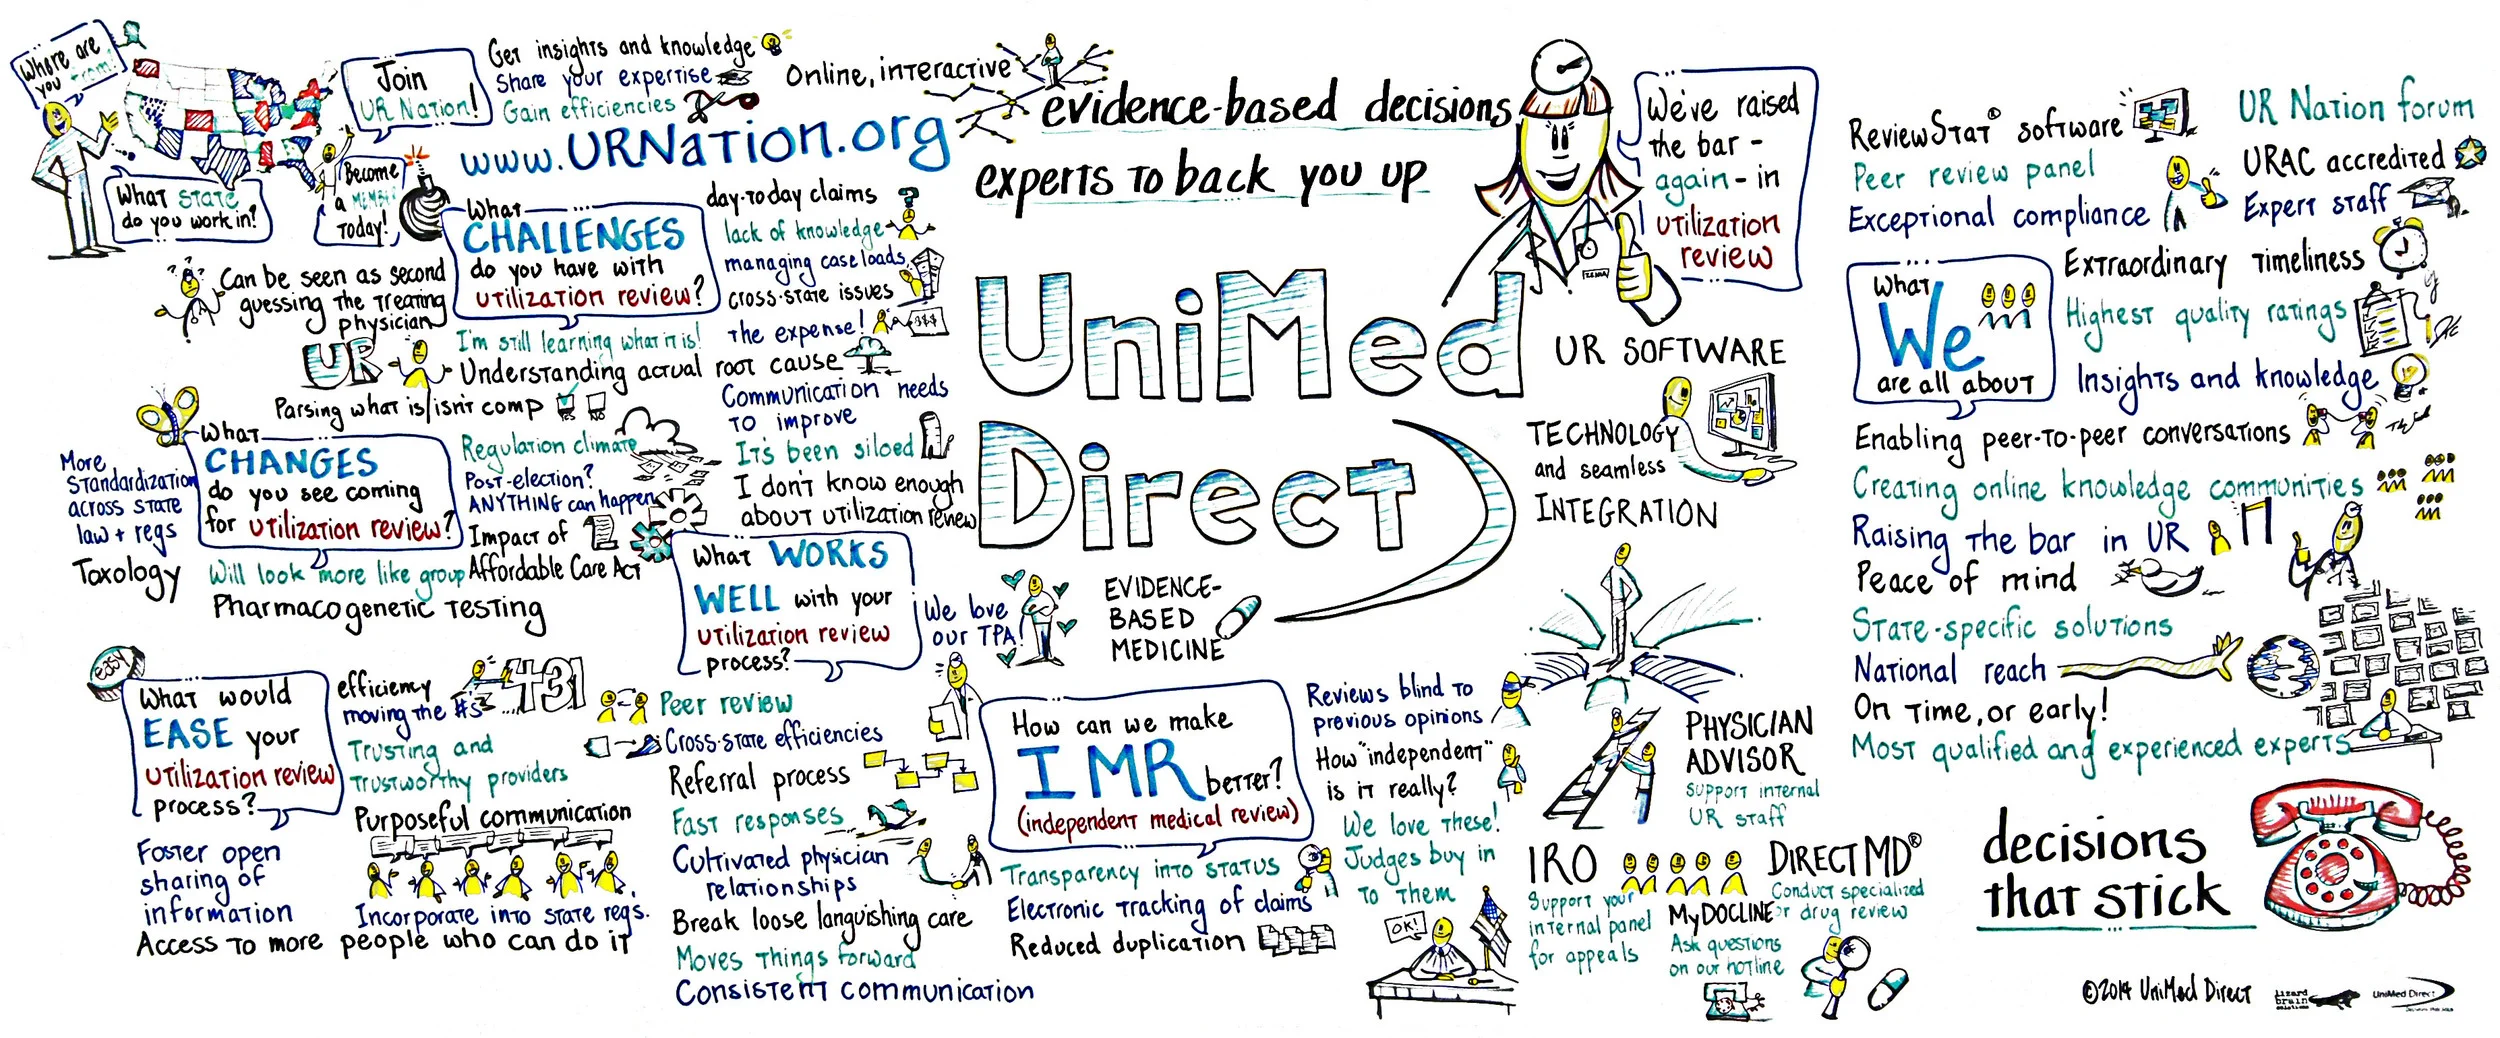 Where are
you from?
What STATE
do you work in?
Join
UR Nation!
Become
a MEMBER
Today!
Get insights and knowledge
Share your expertise
Gain efficiencies
Online, interactive
www.URNation.org
What
CHALLENGES
do you have with
utilization review?
Can be seen as second
guessing the treating
physician
I'm still learning what it is!
UR
Understanding actual root cause
Parsing what is/isn't comp
YES
NO
day-to-day claims
lack of knowledge
managing case loads
cross-state issues
the expense!
$$$
Communication needs
to improve
It's been siloed
I don't know enough
about utilization review
What
CHANGES
do you see coming
for utilization review?
More
standardization
across state
law + regs
Toxology
Will look more like group
Pharmacogenetic testing
Regulation climate
Post-election?
ANYTHING can happen
Impact of
Affordable Care Act
What WORKS
WELL with your
utilization review
process?
We love
our TPA!
Peer review
Cross-state efficiencies
Referral process
Fast responses
Cultivated physician
relationships
Break loose languishing care
Moves things forward
Consistent communication
easy
What would
EASE your
utilization review
process?
efficiency
moving the #s
431
Trusting and
trustworthy providers
Purposeful communication
Foster open
sharing of
information
Incorporate into state regs.
Access to more people who can do it
evidence-based decisions
experts to back you up
UniMed
Direct
We've raised
the bar -
again - in
utilization
review
UR SOFTWARE
TECHNOLOGY
and seamless
INTEGRATION
EVIDENCE-
BASED
MEDICINE
How can we make
IMR better?
(independent medical review)
Transparency into status
Electronic tracking of claims
Reduced duplication
Reviews blind to
previous opinions
How "independent"
is it really?
We love these!
Judges buy in
to them
OK!
PHYSICIAN
ADVISOR
support internal
UR staff
IRO
Support your
internal panel
for appeals
DIRECTMD®
Conduct specialized
or drug review
MyDOCLINE
Ask questions
on our hotline
ReviewStat® software
Peer review panel
Exceptional compliance
UR Nation forum
URAC accredited
Expert staff
What
We
are all about
Extraordinary timeliness
Highest quality ratings
Insights and knowledge
Enabling peer-to-peer conversations
Creating online knowledge communities
Raising the bar in UR
Peace of mind
State-specific solutions
National reach
On time, or early!
Most qualified and experienced experts
decisions
that stick
©2014 UniMed Direct
lizard
brain
solutions
UniMed Direct